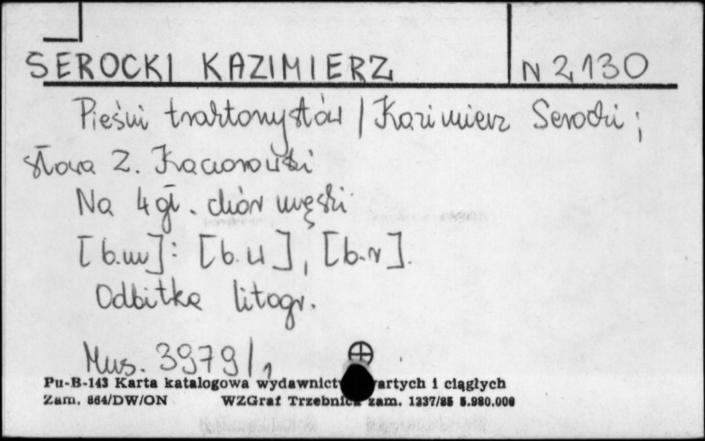 SEROCKI KAZIMIERZ
N 2,130
Pieśni traktorzystów / Kazimierz Serocki ;
słowa Z. Kaciorowski
Na 4 gł. chór męski
[b.m] : [b.w], [b.r].
Odbitka litogr.
Mus. 3979/1
Pu-B-143 Karta katalogowa wydawnictw zwartych i ciągłych
Zam. 864/DW/ON WZGraf Trzebnica zam. 1337/85 5.980.000